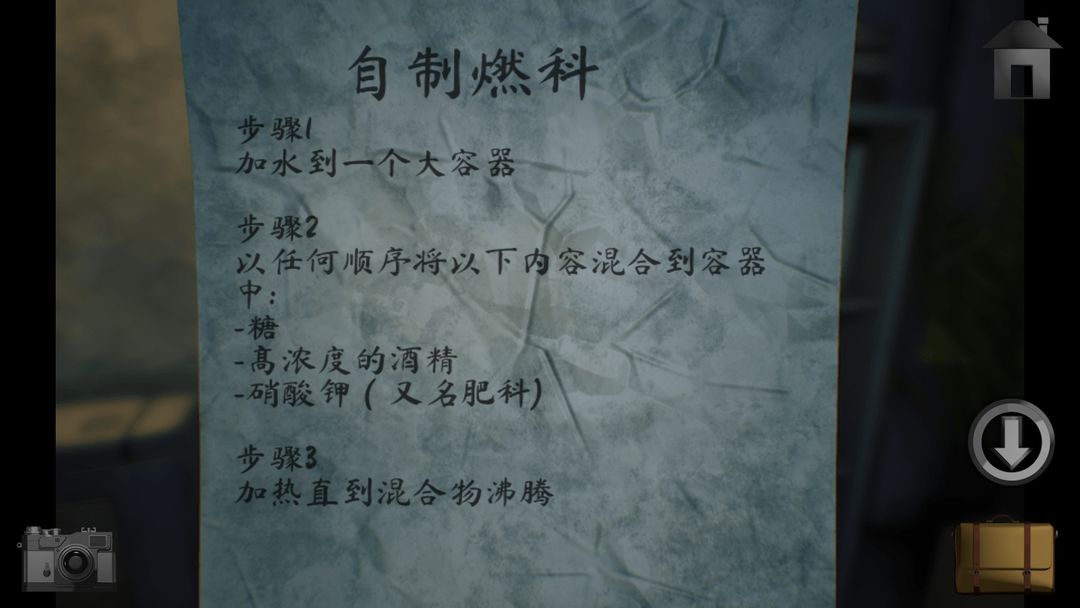 自制燃科
步骤1
加水到一个大容器
步骤2
以任何顺序将以下内容混合到容器
中：
-糖
-高浓度的酒精
-硝酸钾（又名肥科）
步骤3
加热直到混合物沸腾